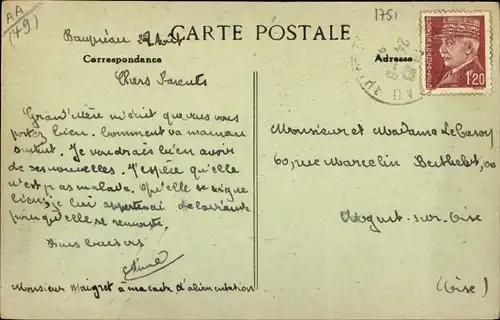 AA
(49)
1751
CARTE POSTALE
Correspondance
Adresse
1f20
Beaupréau 24 Août
Chers Parents
Grand'Mère m'écrit que vous vous
portez bien. Comment va maman
surtout. Je voudrais bien avoir
de ses nouvelles. J'espère qu'elle
n'est pas malade. Qu'elle se soigne
bien, je lui apporterai de la viande
pour qu'elle se remonte.
Bons baisers
Monsieur Maigret à ma carte d'alimentation
Monsieur et Madame
60, rue Marcelin Berthelot, 60
Nogent-sur-Oise
(Oise)